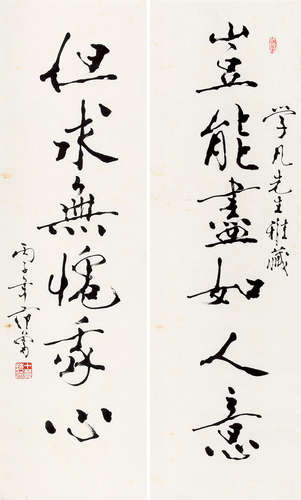 学凡先生雅藏
豈能盡如人意
但求無愧我心
丙子年范曾